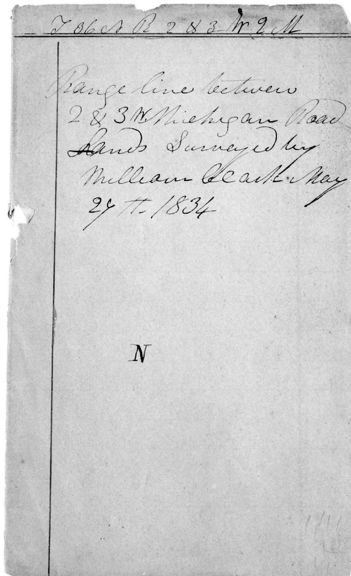 T 36 N R 2 & 3 W 2 M
Range line between
2 & 3 W Michigan Road
Lands Surveyed by
William Clark May
27th 1834
N